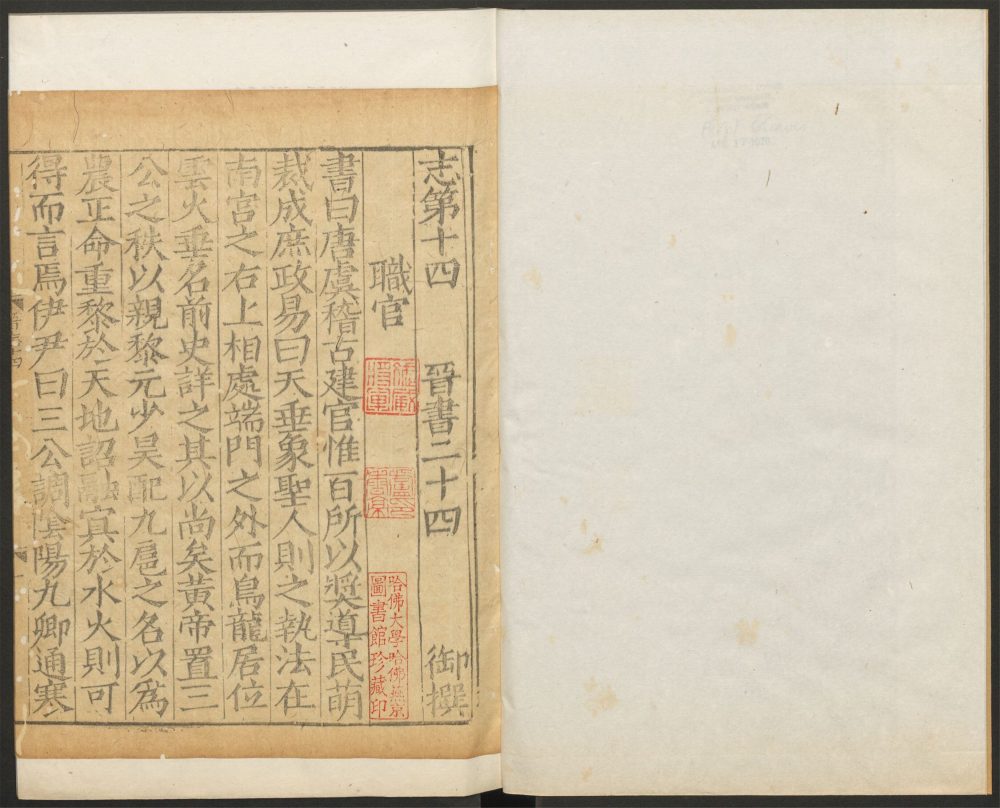 志第十四 晉書二十四 御撰
職官
書曰唐虞稽古建官惟百所以奬導民萌
裁成庶政易曰天垂象聖人則之執法在
南宮之右上相處端門之外而鳥龍居位
雲火垂名前史詳之其以尚矣黃帝置三
公之秩以親黎元少昊配九扈之名以爲
農正命重黎於天地詔融冥於水火則可
得而言焉伊尹曰三公調陰陽九卿通寒
哈佛大學哈佛燕京
圖書館珍藏印